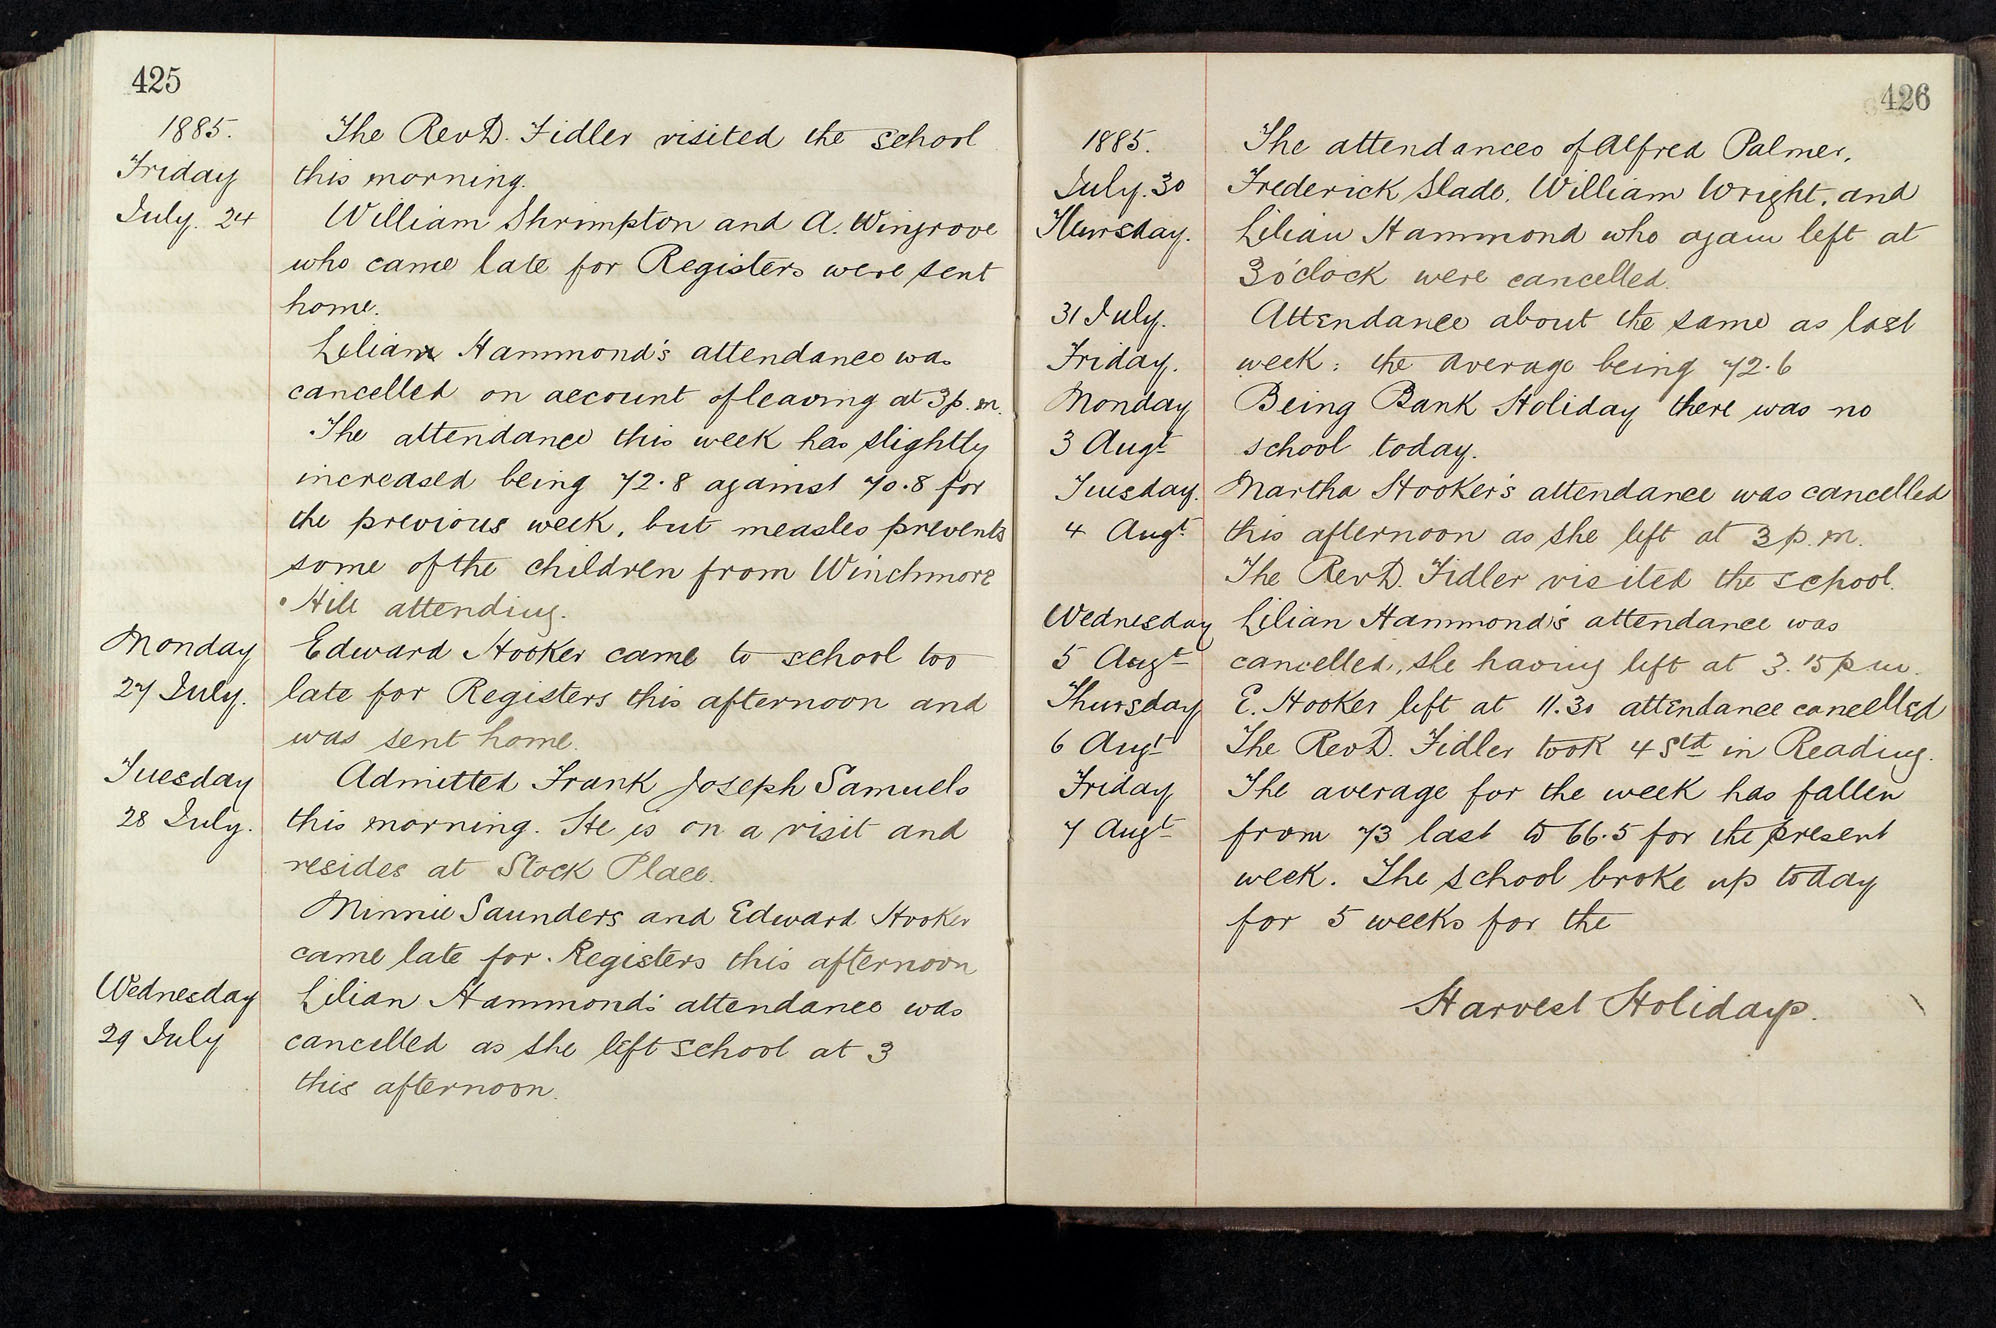 425
1885.
Friday
July. 24
The RevD. Fidler visited the school
this morning.
William Shrimpton and A. Wingrove
who came late for Registers were sent
home.
Lilian Hammond's attendance was
cancelled on account of leaving at 3 p.m.
The attendance this week has slightly
increased being 72.8 against 70.8 for
the previous week, but measles prevents
some of the children from Winchmore
Hill attending.
Monday
27 July.
Edward Hooker came to school too
late for Registers this afternoon and
was sent home.
Tuesday
28 July.
Admitted Frank Joseph Samuels
this morning. He is on a visit and
resides at Stock Place.
Minnie Saunders and Edward Hooker
came late for Registers this afternoon
Wednesday
29 July
Lilian Hammond's attendance was
cancelled as she left school at 3
this afternoon.
426
1885.
July. 30
Thursday.
The attendances of Alfred Palmer,
Frederick Slade, William Wright, and
Lilian Hammond who again left at
3 o'clock were cancelled.
31 July.
Friday.
Attendance about the same as last
week: the average being 72.6
Monday
3 Augt
Being Bank Holiday there was no
school today.
Tuesday.
4 Augt
Martha Hooker's attendance was cancelled
this afternoon as she left at 3 p.m.
The RevD. Fidler visited the school.
Wednesday
5 Augt
Lilian Hammond's attendance was
cancelled, she having left at 3.15 pm.
Thursday
6 Augt
E. Hooker left at 11.30 attendance cancelled
The RevD. Fidler took 4 Std in Reading.
Friday
7 Augt
The average for the week has fallen
from 73 last to 66.5 for the present
week. The school broke up today
for 5 weeks for the
Harvest Holidays.